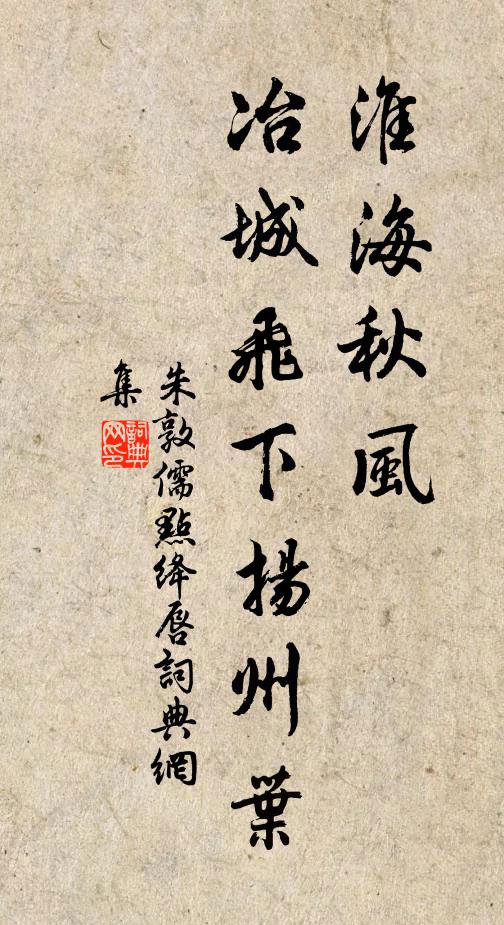 淮海秋風
冶城飛下揚州葉
朱敦儒點絳唇詞典網
集
詞典
网印